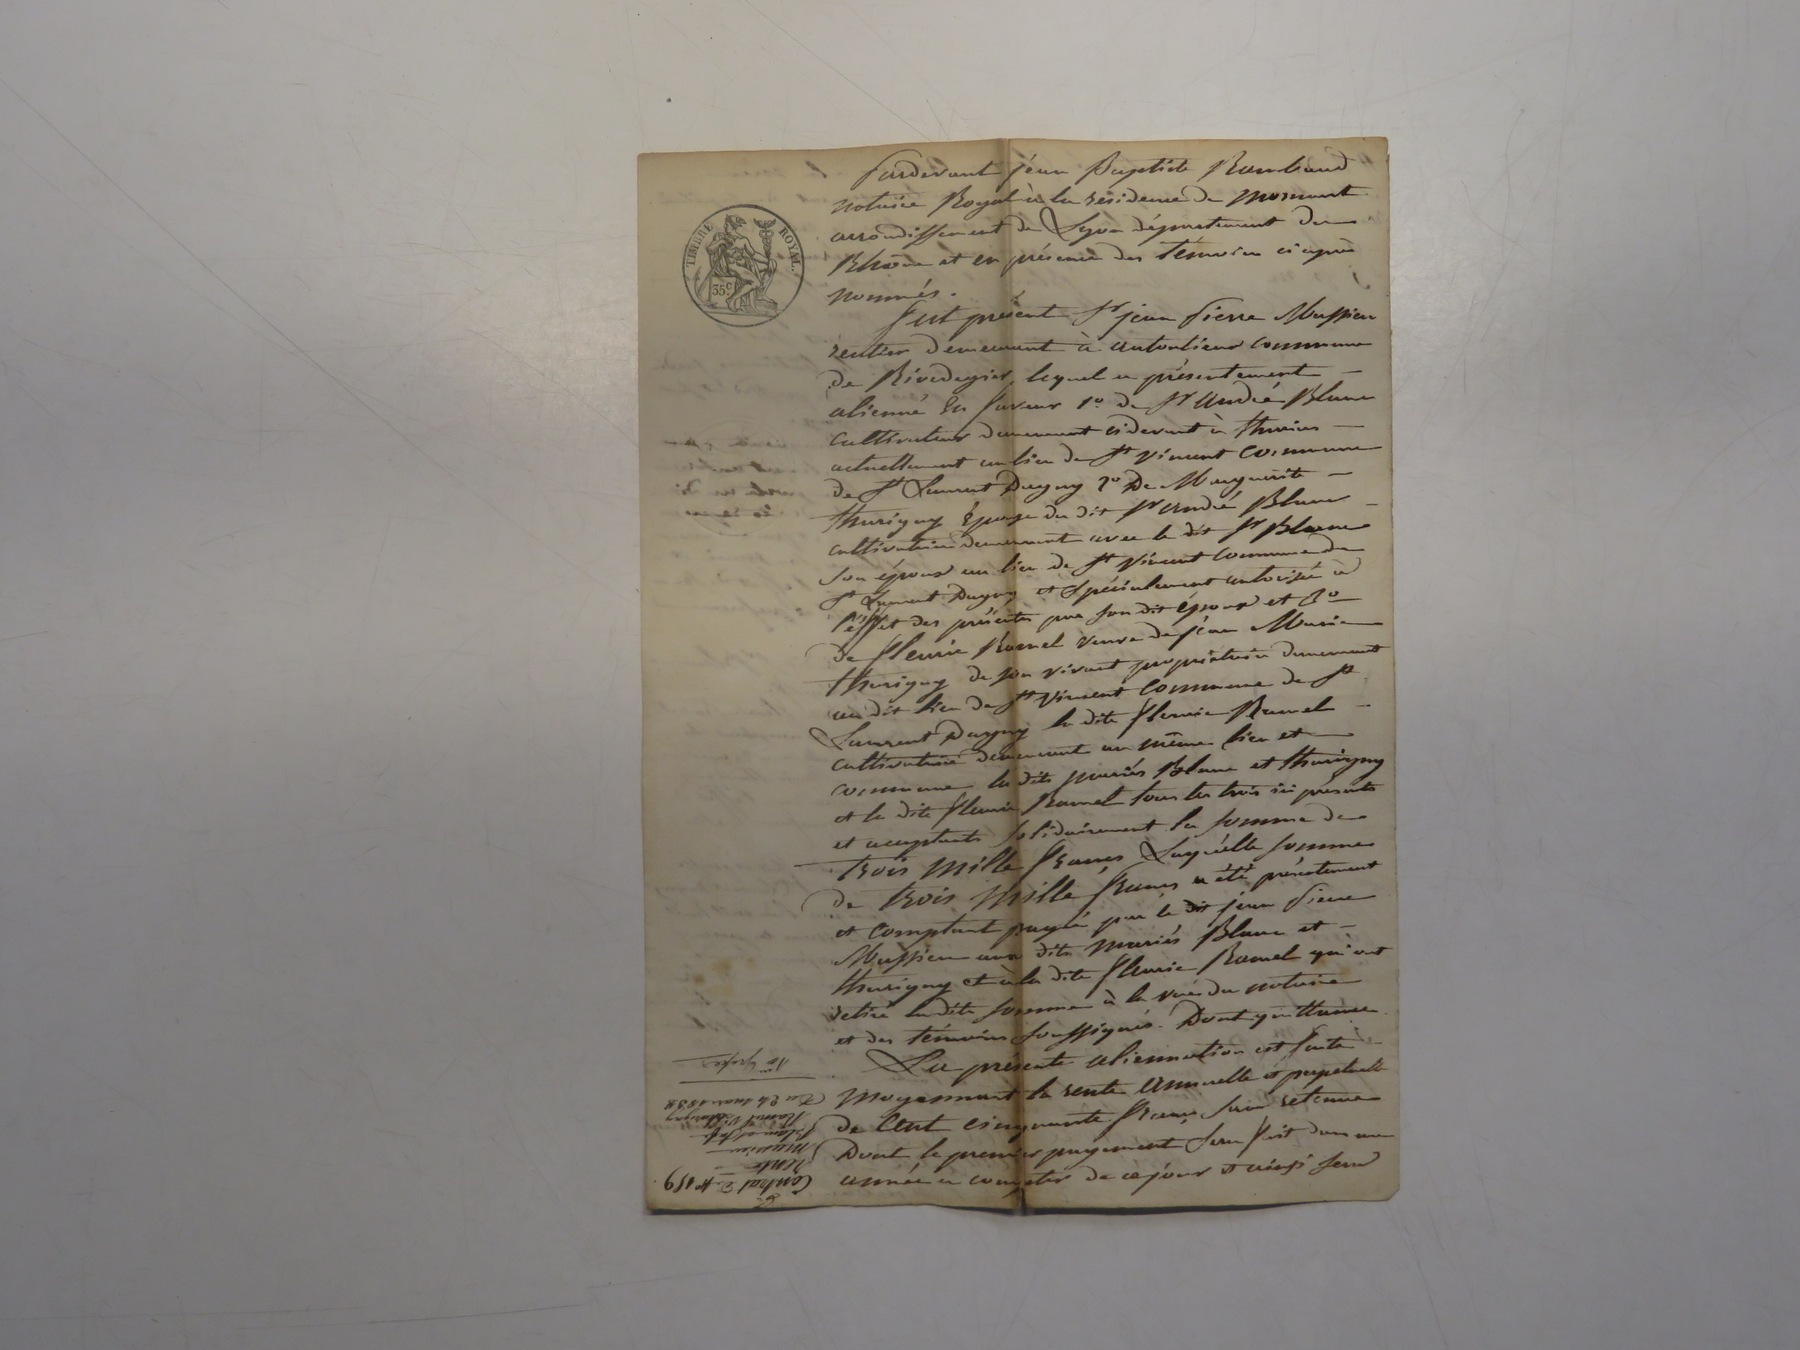 TIMBRE ROYAL.
35 c
Pardevant jean Baptiste Rambaud
notaire Royal à la résidence de mornant
arrondissement de Lyon département du
Rhône et en présence des témoins ci après
nommés.
fut présent Sr jean Pierre
rentier demeurant à commune
de Rivedegier, lequel a présentement
alienné En faveur 1o de Sr André Blanc
cultivateur demeurant cidevant à thurins
actuellement au lieu de St Vincent Commune
de St Laurent Dagny 2o De Marguerite
thurigny Epouse du dit Sr André Blanc
cultivatrice demeurant avec le dit Sr Blanc
son époux au lieu de St Vincent Commune de
St Laurent Dagny et spécialement autorisée à
l'effet des présentes par son dit époux et 3o
de fleurie Ramel veuve de jean Marie
thurigny de son vivant propriétaire demeurant
au dit lieu de St Vincent Commune de St
Laurent Dagny la dite fleurie Ramel
cultivatrice demeurant au même lieu et
commune les dits mariés Blanc et thurigny
et la dite fleurie Ramel tous les trois ici présents
et acceptants solidairement la somme de
trois mille francs Laquelle somme
de trois mille francs a été présentement
et comptant payée par le dit jean Pierre
aux dits mariés Blanc et
thurigny et à la dite fleurie Ramel qui ont
retiré la dite somme à la vue du notaire
et des témoins soussignés. Dont quittance
La présente aliennation est faite
moyennant la rente annuelle et perpetuelle
de Cent cinquante francs sans retenue
Dont le premier payement sera fait dans une
année à compter de ce jour et ainsi sera
Contrat de No 159
rente
Ramel Ve thurigny
Du 24 mars 1838